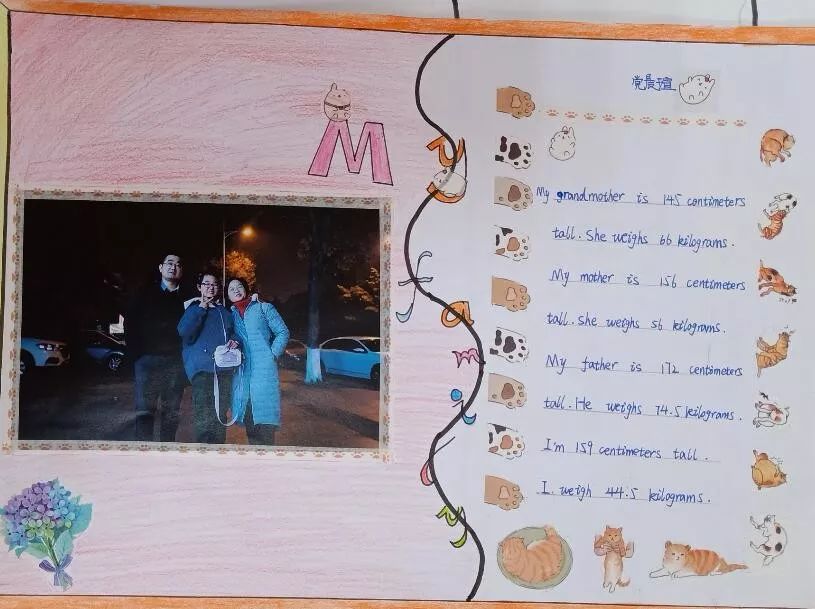 My family
党晨瑄
My grandmother is 145 centimeters
tall. She weighs 66 kilograms.
My mother is 156 centimeters
tall. She weighs 56 kilograms.
My father is 172 centimeters
tall. He weighs 74.5 kilograms.
I'm 159 centimeters tall.
I. weigh 44.5 kilograms.